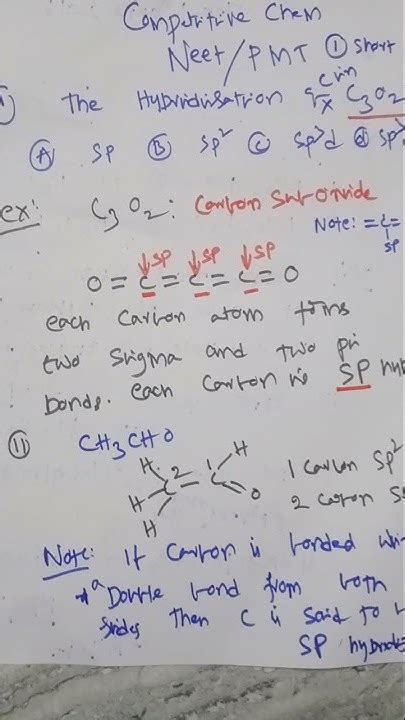 Competitive Chem
Neet/PMT ① short
The Hybridisation of C in C3O2
Ⓐ SP Ⓑ SP² Ⓒ SP³d ⓓ SP³
ex: C3O2: Carbon Suboxide
Note: =C=
SP
↓SP ↓SP ↓SP
O=C=C=C=O
each Carbon atom forms
two Sigma and two pi
bonds. each Carbon is SP hy
⑪ CH3CHO
H H
2 1
H C C O
H
1 Carbon SP²
2 Carbon S
Note: If Carbon is bonded wi
* a Double bond from both
sides then C is said to
SP hybridi